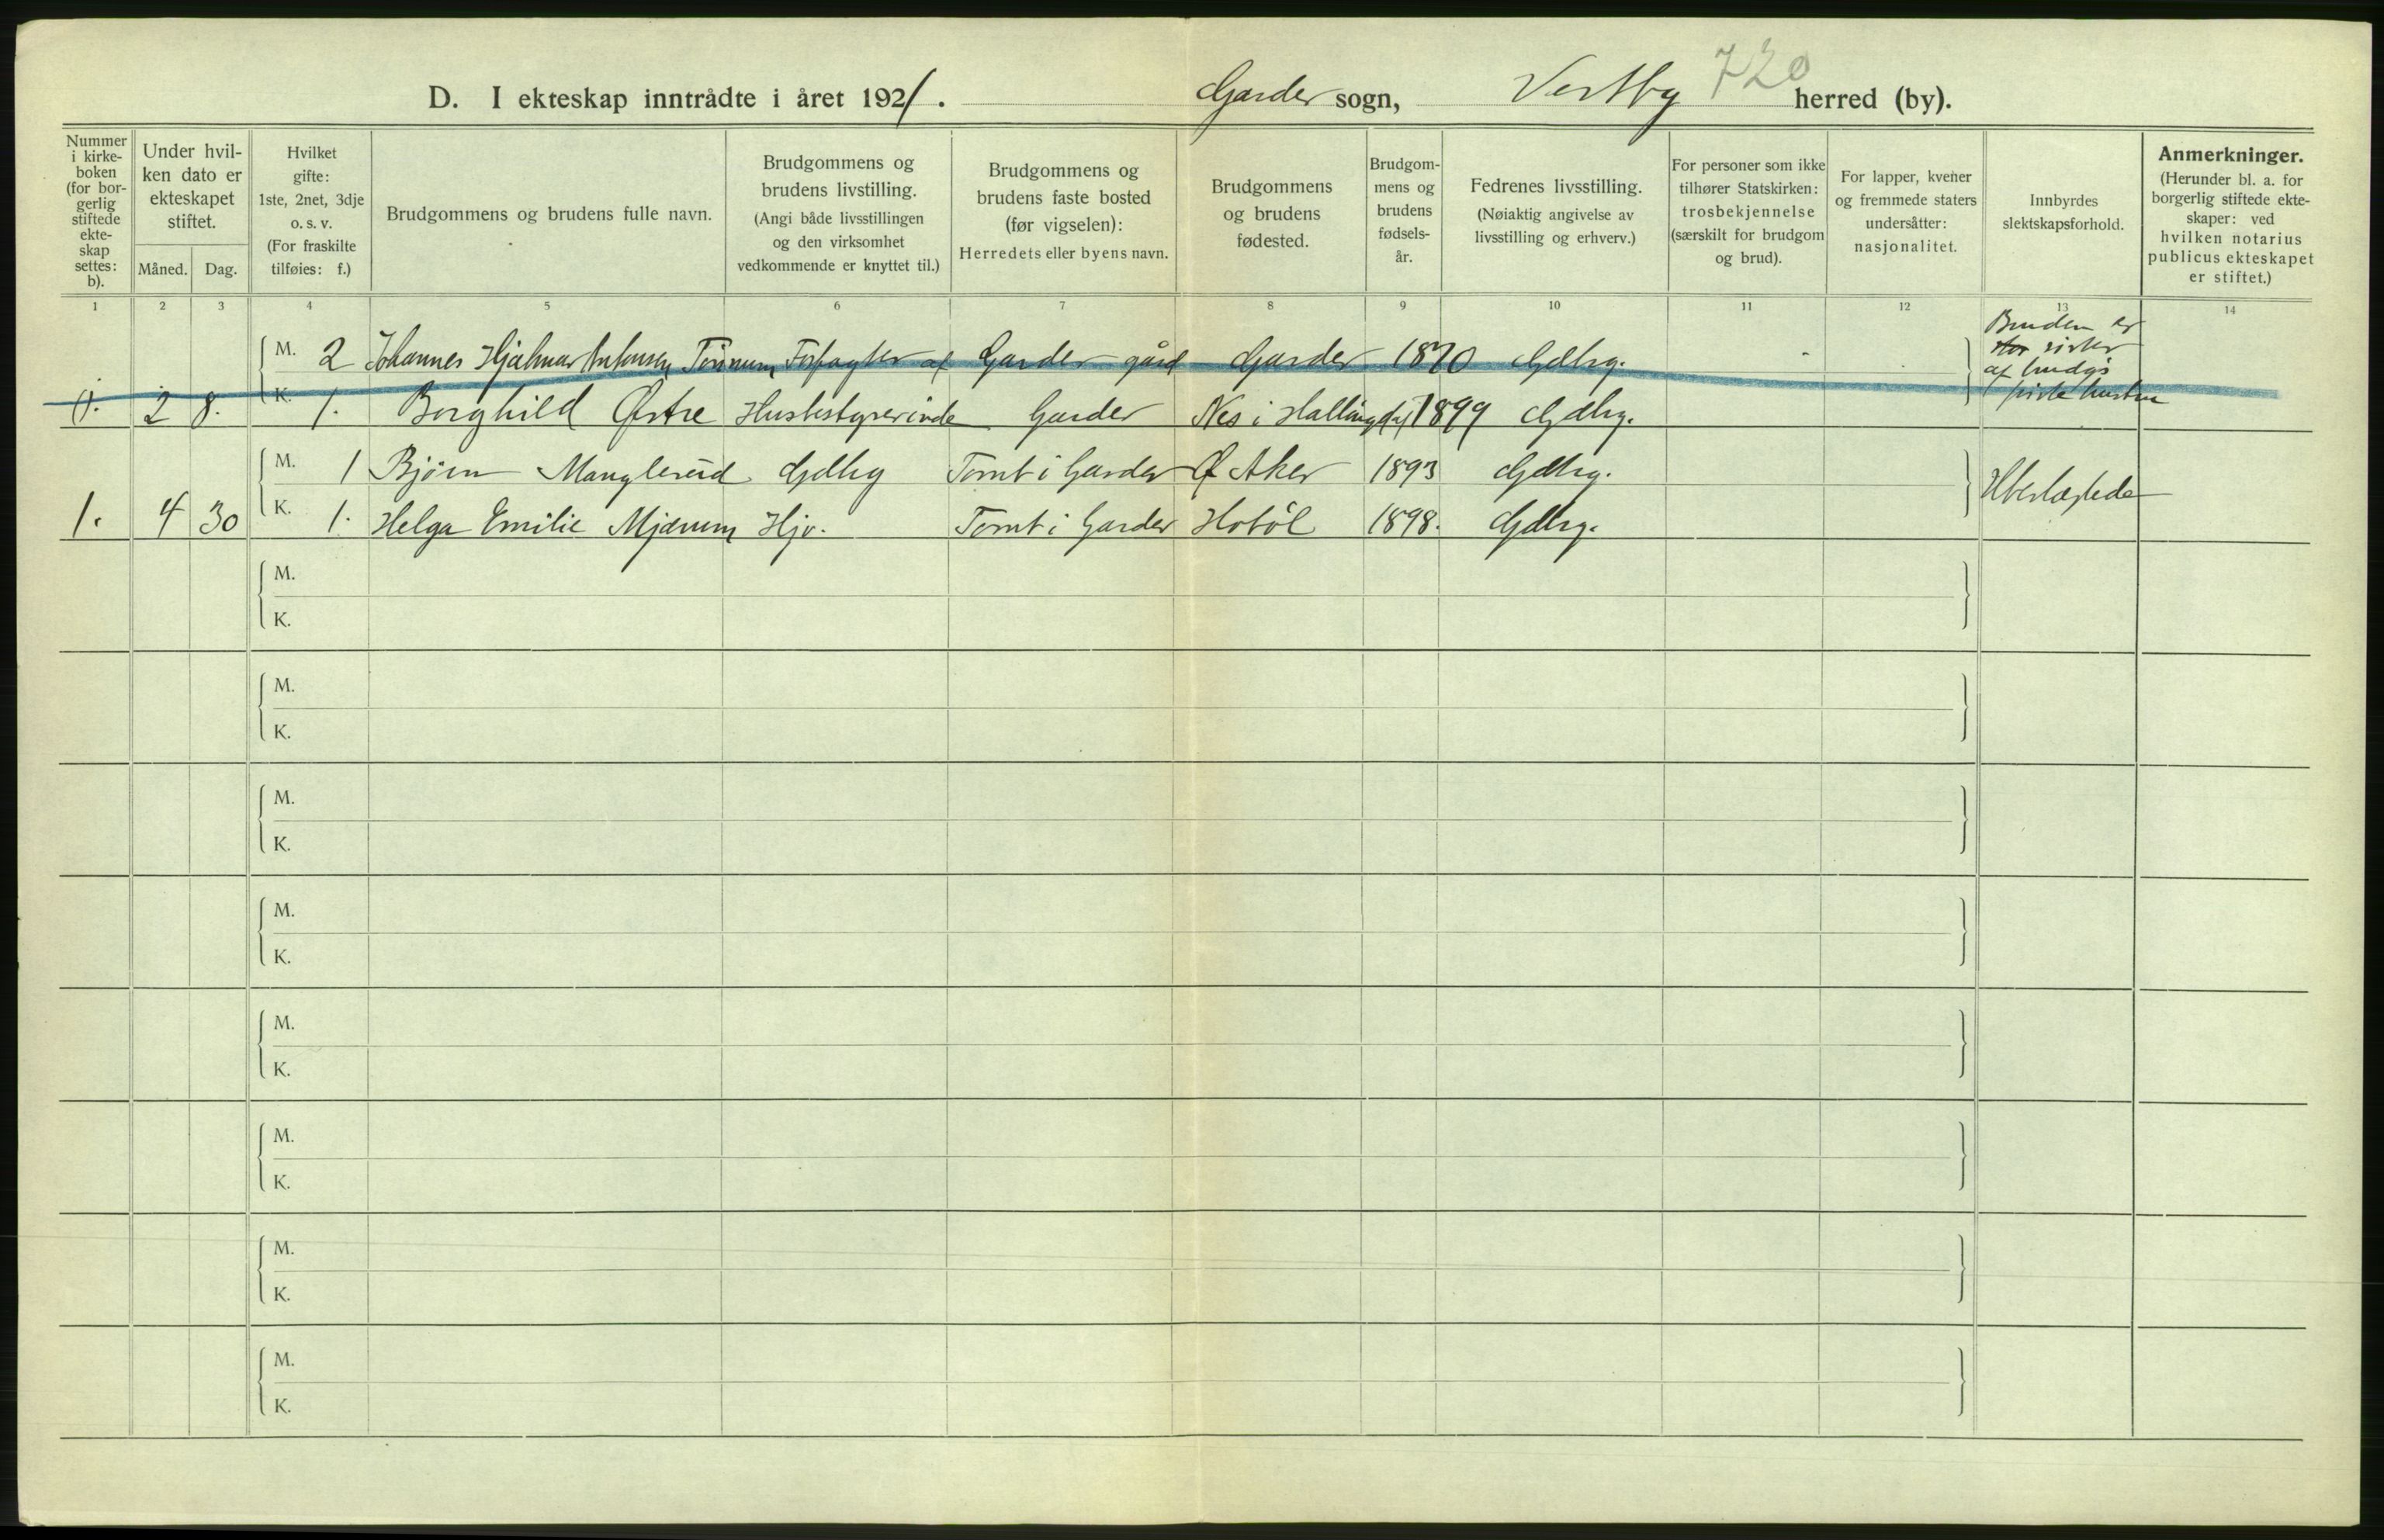 720
D. I ekteskap inntrådte i året 1921. Garder sogn, Vestby herred (by).
Nummer i kirkeboken (for borgerlig stiftede ekteskap settes: b).
Under hvilken dato er ekteskapet stiftet.
Måned. Dag.
Hvilket gifte: 1ste, 2net, 3dje o. s. v. (For fraskilte tilføies: f.)
Brudgommens og brudens fulle navn.
Brudgommens og brudens livstilling. (Angi både livsstillingen og den virksomhet vedkommende er knyttet til.)
Brudgommens og brudens faste bosted (før vigselen): Herredets eller byens navn.
Brudgommens og brudens fødested.
Brudgommens og brudens fødselsår.
Fedrenes livsstilling. (Nøiaktig angivelse av livsstilling og erhverv.)
For personer som ikke tilhører Statskirken: trosbekjennelse (særskilt for brudgom og brud).
For lapper, kvener og fremmede staters undersåtter: nasjonalitet.
Innbyrdes slektskapsforhold.
Anmerkninger. (Herunder bl. a. for borgerlig stiftede ekteskaper: ved hvilken notarius publicus ekteskapet er stiftet.)
1 2 3 4 5 6 7 8 9 10 11 12 13 14
M. 2 Johannes Hjalmar Tønnum Forpagter af Garder gård Garder 1870 Gdbrg. Bruden er søster af brudg.s første hustru
2 8. K. 1. Borghild Østre Husbestyrerinde Garder Nes i Hallingdal 1899 Gdbrg.
M. 1 Bjørn Manglerud Gdbrg Tomt i Garder Ø Aker 1893 Gdbrg.
1. 4 30 K. 1. Helga Emilie Mjærum Hjv. Tomt i Garder Hobøl 1898. Gdbrg. Ubeslægtede
M.
K.
M.
K.
M.
K.
M.
K.
M.
K.
M.
K.
M.
K.
M.
K.